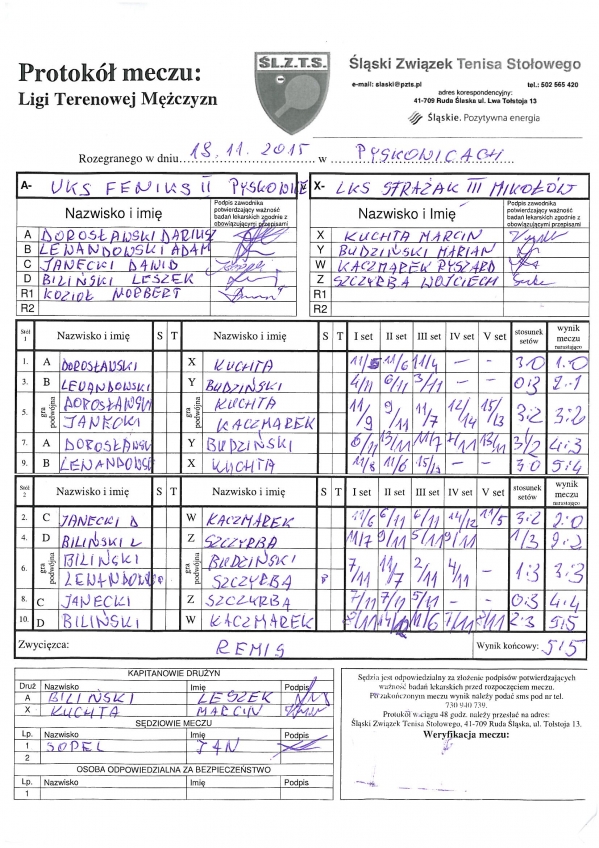 ŚL.Z.T.S.
Protokół meczu:
Ligi Terenowej Mężczyzn
Śląski Związek Tenisa Stołowego
e-mail: slaski@pzts.pl tel.: 502 565 420
adres korespondencyjny:
41-709 Ruda Śląska ul. Lwa Tołstoja 13
Śląskie. Pozytywna energia
Rozegranego w dniu 18.11.2015 w PYSKOWICACH
A- UKS FENIKS II PYSKOWICE X- LKS STRAŻAK III MIKOŁÓW
Nazwisko i imię Podpis zawodnika potwierdzający ważność badań lekarskich zgodnie z obowiązującym przepisami Nazwisko i Imię Podpis zawodnika potwierdzający ważność badań lekarskich zgodnie z obowiązującym przepisami
A DOROSŁAWSKI DARIUSZ X KUCHTA MARCIN
B LEWANDOWSKI ADAM Y BUDZIŃSKI MARIAN
C JANECKI DAWID W KACZMAREK RYSZARD
D BILIŃSKI LESZEK Z SZCZYRBA WOJCIECH
R1 KOZIOŁ NORBERT R1
R2 R2
Stół 1 Nazwisko i imię S T Nazwisko i imię S T I set II set III set IV set V set stosunek setów wynik meczu narastająco
1. A DOROSŁAWSKI X KUCHTA 11/5 11/6 11/4 – – 3:0 1:0
3. B LEWANDOWSKI Y BUDZIŃSKI 4/11 6/11 3/11 – – 0:3 2:1
5. gra podwójna DOROSŁAWSKI JANECKI KUCHTA KACZMAREK 11/9 9/11 11/7 12/14 15/13 3:2 3:2
7. A DOROSŁAWSKI Y BUDZIŃSKI 6/11 13/11 11/7 7/11 13/11 3/2 4:3
9. B LEWANDOWSKI X KUCHTA 11/8 11/6 15/13 3:0 5:4
Stół 2 Nazwisko i imię S T Nazwisko i imię S T I set II set III set IV set V set stosunek setów wynik meczu narastająco
2. C JANECKI D W KACZMAREK 11/6 6/11 6/11 14/12 11/5 3:2 2:0
4. D BILIŃSKI L Z SZCZYRBA 11/7 9/11 5/11 9/11 1/3 2:2
6. gra podwójna BILIŃSKI LEWANDOWSKI BUDZIŃSKI SZCZYRBA 7/11 11/7 2/11 4/11 – 1:3 3:3
8. C JANECKI Z SZCZYRBA 7/11 7/11 5/11 – – 0:3 4:4
10. D BILIŃSKI W KACZMAREK 11/6 7/11 2:3 5:5
Zwycięzca: REMIS Wynik końcowy: 5:5
KAPITANOWIE DRUŻYN
Druż Nazwisko Imię Podpis
A BILIŃSKI LESZEK
X KUCHTA MARCIN
SĘDZIOWIE MECZU
Lp. Nazwisko Imię Podpis
1 SOPEL JAN
2
OSOBA ODPOWIEDZIALNA ZA BEZPIECZEŃSTWO
Lp. Nazwisko Imię Podpis
1
Sędzia jest odpowiedzialny za złożenie podpisów potwierdzających
ważność badań lekarskich przed rozpoczęciem meczu.
Po zakończonym meczu wynik należy podać sms pod nr tel.
730 940 739.
Protokół w ciągu 48 godz. należy przesłać na adres:
Śląski Związek Tenisa Stołowego, 41-709 Ruda Śląska, ul. Tołstoja 13.
Weryfikacja meczu: